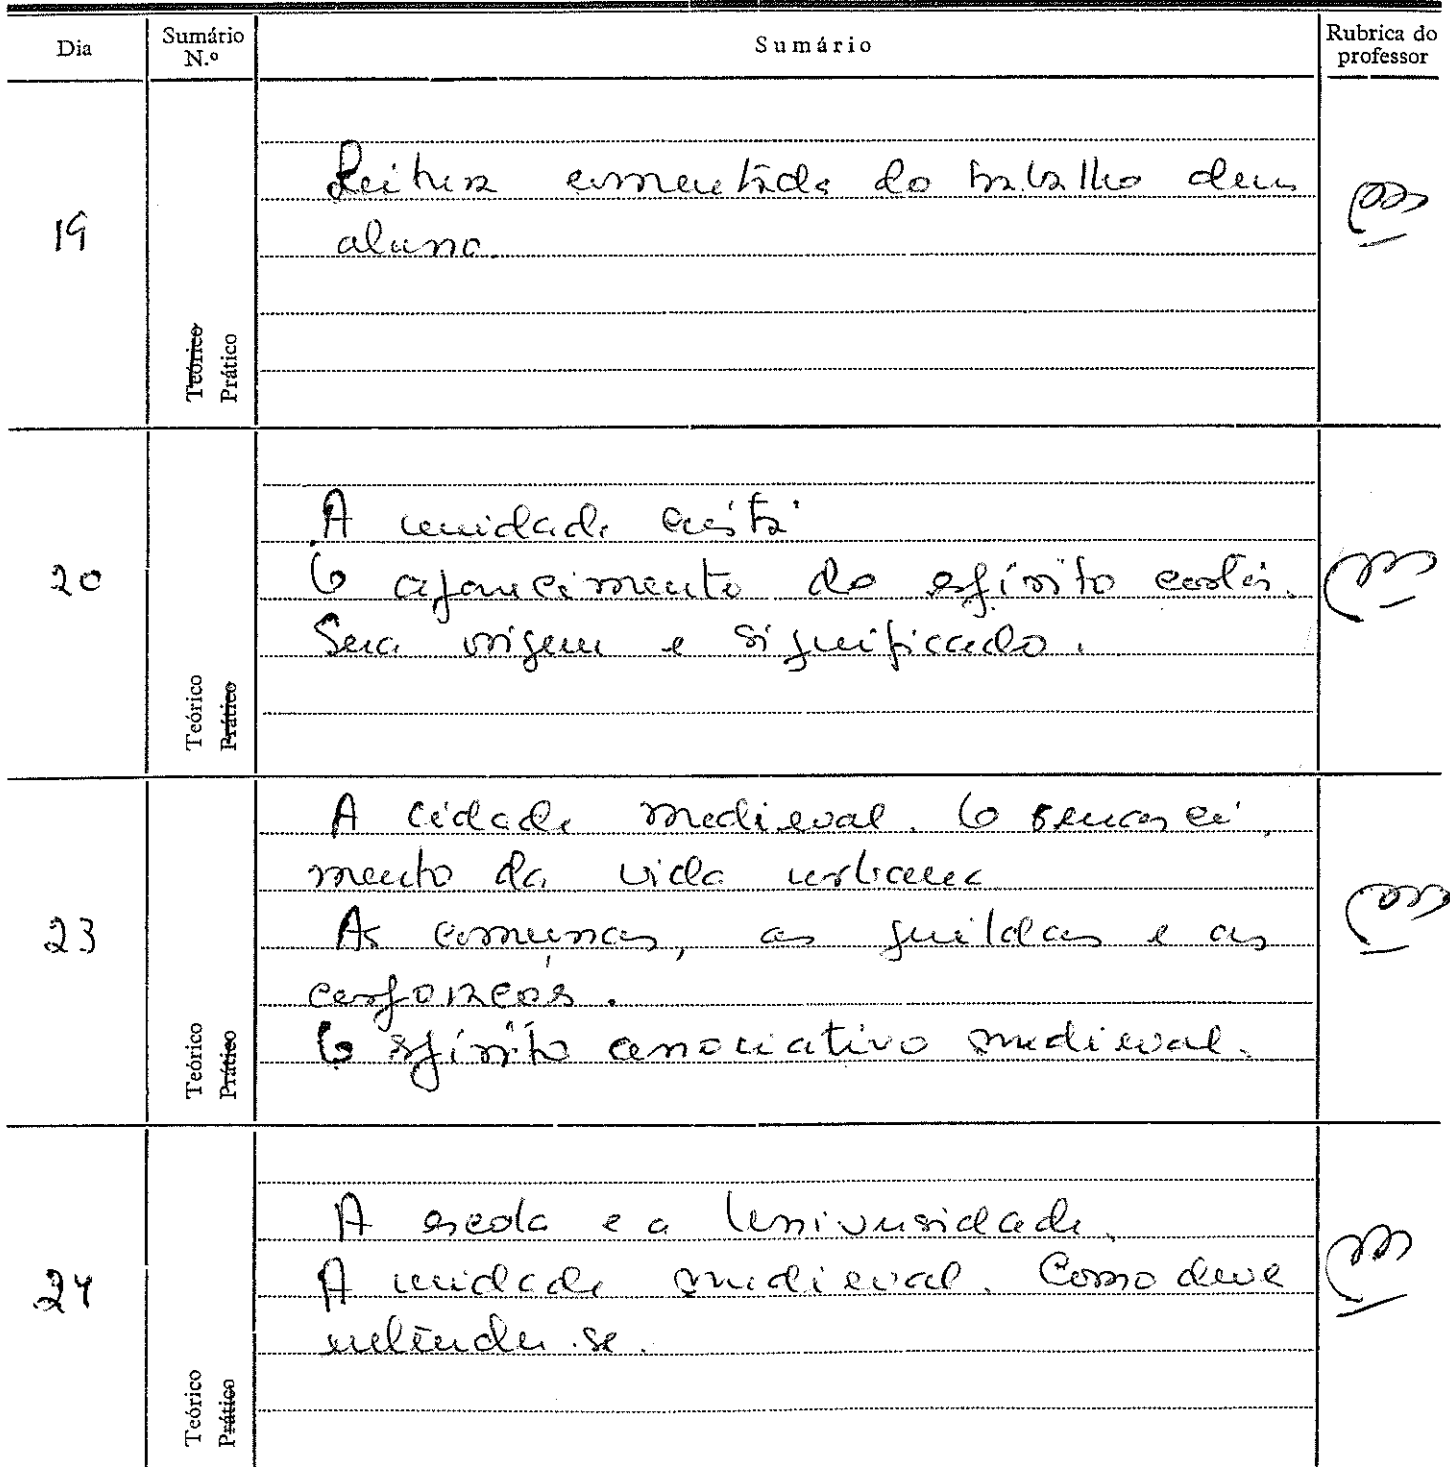 Dia Sumário N.º Sumário Rubrica do professor
19 Teórico Prático
Leitura comentada do trabalho dum
aluno.
20 Teórico Prático
A unidade cristã
O aparecimento do espírito cortês.
Sua origem e significado.
23 Teórico Prático
A cidade medieval. O renasci-
mento da vida urbana
As comunas, as guildas e as
corporações.
O espírito associativo medieval.
24 Teórico Prático
A escola e a Universidade.
A unidade medieval. Como deve
entender-se.